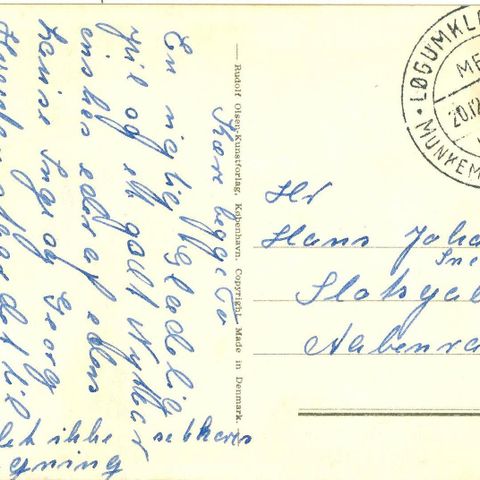 Kære begge to
En rigtig glædelig
jul og et godt Nytår
ønskes eder af eders
Louise Inge og Georg
det til
ikke
gning
Rudolf Olsen-Kunstforlag, København. Copyright. Made in Denmark.
LØGUMKL
ME
20.12
MUNKEM
Hr
Hans Joha
Sne
Slotsga
Aabenra